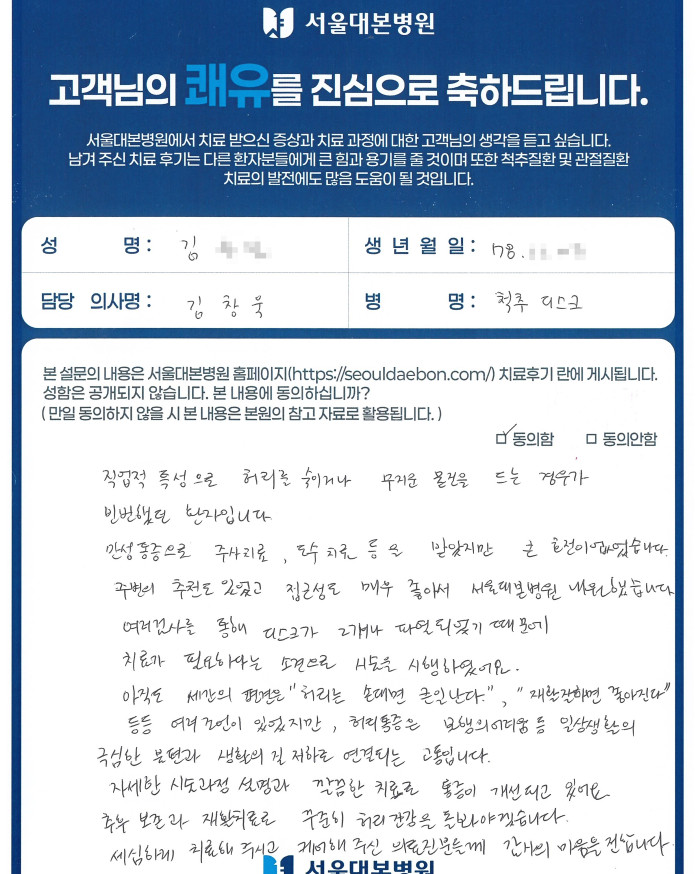 서울대본병원
고객님의 쾌유를 진심으로 축하드립니다.
서울대본병원에서 치료 받으신 증상과 치료 과정에 대한 고객님의 생각을 듣고 싶습니다.
남겨 주신 치료 후기는 다른 환자분들에게 큰 힘과 용기를 줄 것이며 또한 척추질환 및 관절질환
치료의 발전에도 많음 도움이 될 것입니다.
성 명 : 김
생 년 월 일 : 78.
담당 의사명 : 김 창 욱
병 명 : 척추 디스크
본 설문의 내용은 서울대본병원 홈페이지(https://seouldaebon.com/) 치료후기 란에 게시됩니다.
성함은 공개되지 않습니다. 본 내용에 동의하십니까?
( 만일 동의하지 않을 시 본 내용은 본원의 참고 자료로 활용됩니다. )
동의함 동의안함
직업적 특성으로 허리를 숙이거나 무거운 물건을 드는 경우가
빈번했던 환자입니다
만성통증으로 주사치료, 도수치료 등을 받았지만 큰 호전이 없었습니다.
주변의 추천도 있었고 접근성도 매우 좋아서 서울대본병원 내원했습니다
여러검사를 통해 디스크가 2개나 파열되었기 때문에
치료가 필요하다는 소견으로 시술을 시행하였어요.
아직도 세간의 편견은 "허리는 손대면 큰일난다.", "재활잘하면 좋아진다"
등등 여러조언이 있었지만, 허리통증은 보행의어려움 등 일상생활의
극심한 불편과 생활의 질 저하로 연결되는 고통입니다.
자세한 시술과정 설명과 깔끔한 치료로 통증이 개선되고 있어요
추후 보존과 재활치료로 꾸준히 허리건강을 돌봐야겠습니다.
세심하게 치료해 주시고 케어해 주신 의료진분들께 감사의 마음을 전합니다.
서울대본병원